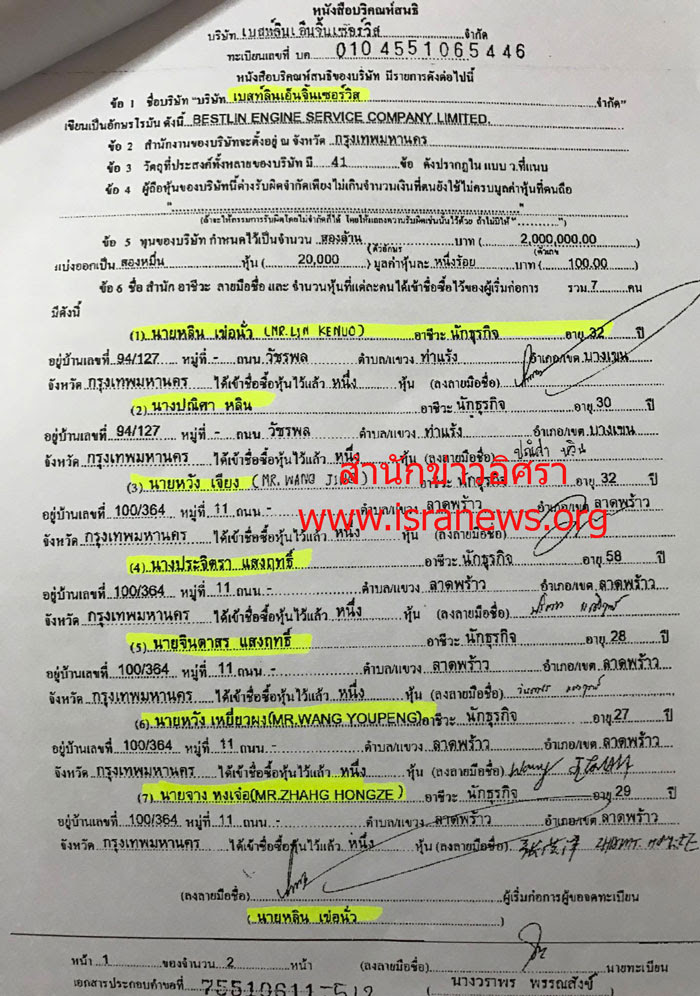 หนังสือบริคณห์สนธิ
บริษัท เบสท์ลินเอ็นจิ้นเซอร์วิส จำกัด
ทะเบียนเลขที่ บค. 0104551065446
หนังสือบริคณห์สนธิของบริษัท มีรายการดังต่อไปนี้
ข้อ 1 ชื่อบริษัท "บริษัท เบสท์ลินเอ็นจิ้นเซอร์วิส จำกัด"
เขียนเป็นอักษรโรมัน ดังนี้ BESTLIN ENGINE SERVICE COMPANY LIMITED.
ข้อ 2 สำนักงานของบริษัทจะตั้งอยู่ ณ จังหวัด กรุงเทพมหานคร
ข้อ 3 วัตถุที่ประสงค์ทั้งหลายของบริษัท มี 41 ข้อ ดังปรากฏใน แบบ ว.ที่แนบ
ข้อ 4 ผู้ถือหุ้นของบริษัทนี้ต่างรับผิดจำกัดเพียงไม่เกินจำนวนเงินที่ตนยังใช้ไม่ครบมูลค่าหุ้นที่ตนถือ
(ถ้าจะให้กรรมการรับผิดโดยไม่จำกัดก็ได้ โดยให้แสดงความรับผิดเช่นนั้นไว้ด้วย ถ้าไม่มีให้ "..........")
ข้อ 5 ทุนของบริษัท กำหนดไว้เป็นจำนวน สองล้าน บาท ( 2,000,000.00 )
(ตัวอักษร) (ตัวเลข)
แบ่งออกเป็น สองหมื่น หุ้น ( 20,000 ) มูลค่าหุ้นละ หนึ่งร้อย บาท ( 100.00 )
ข้อ 6 ชื่อ สำนัก อาชีวะ ลายมือชื่อ และ จำนวนหุ้นที่แต่ละคนได้เข้าชื่อซื้อไว้ของผู้เริ่มก่อการ รวม 7 คน
มีดังนี้
(1) นายหลิน เข่อนั่ว (MR.LIN KENUO) อาชีวะ นักธุรกิจ อายุ 32 ปี
อยู่บ้านเลขที่ 94/127 หมู่ที่ - ถนน วัชรพล ตำบล/แขวง ท่าแร้ง อำเภอ/เขต บางเขน
จังหวัด กรุงเทพมหานคร ได้เข้าชื่อซื้อหุ้นไว้แล้ว หนึ่ง หุ้น (ลงลายมือชื่อ)
(2) นางปณิศา หลิน อาชีวะ นักธุรกิจ อายุ 30 ปี
อยู่บ้านเลขที่ 94/127 หมู่ที่ - ถนน วัชรพล ตำบล/แขวง ท่าแร้ง อำเภอ/เขต บางเขน
จังหวัด กรุงเทพมหานคร ได้เข้าชื่อซื้อหุ้นไว้แล้ว หนึ่ง หุ้น (ลงลายมือชื่อ) ปณิศา หลิน
สำนักข่าวอิศรา
(3) นายหวัง เจียง (MR. WANG อาชีวะ นักธุรกิจ อายุ 32 ปี
อยู่บ้านเลขที่ 100/364 หมู่ที่ 11 ถนน - ตำบล/แขวง ลาดพร้าว อำเภอ/เขต ลาดพร้าว
www.isranews.org
จังหวัด กรุงเทพมหานคร ได้เข้าชื่อซื้อหุ้นไว้แล้ว หนึ่ง หุ้น (ลงลายมือชื่อ)
(4) นางประจิตรา แสงฤทธิ์ อาชีวะ นักธุรกิจ อายุ 58 ปี
อยู่บ้านเลขที่ 100/364 หมู่ที่ 11 ถนน - ตำบล/แขวง ลาดพร้าว อำเภอ/เขต ลาดพร้าว
จังหวัด กรุงเทพมหานคร ได้เข้าชื่อซื้อหุ้นไว้แล้ว หนึ่ง หุ้น (ลงลายมือชื่อ)
(5) นายจินตาสร แสงฤทธิ์ อาชีวะ นักธุรกิจ อายุ 28 ปี
อยู่บ้านเลขที่ 100/364 หมู่ที่ 11 ถนน - ตำบล/แขวง ลาดพร้าว อำเภอ/เขต ลาดพร้าว
จังหวัด กรุงเทพมหานคร ได้เข้าชื่อซื้อหุ้นไว้แล้ว หนึ่ง หุ้น (ลงลายมือชื่อ)
(6) นายหวัง เหยี่ยวผง(MR.WANG YOUPENG) อาชีวะ นักธุรกิจ อายุ 27 ปี
อยู่บ้านเลขที่ 100/364 หมู่ที่ 11 ถนน - ตำบล/แขวง ลาดพร้าว อำเภอ/เขต ลาดพร้าว
จังหวัด กรุงเทพมหานคร ได้เข้าชื่อซื้อหุ้นไว้แล้ว หนึ่ง หุ้น (ลงลายมือชื่อ)
(7) นายจาง หงเจ๋อ(MR.ZHAHG HONGZE ) อาชีวะ นักธุรกิจ อายุ 29 ปี
อยู่บ้านเลขที่ 100/364 หมู่ที่ 11 ถนน - ตำบล/แขวง ลาดพร้าว อำเภอ/เขต ลาดพร้าว
จังหวัด กรุงเทพมหานคร ได้เข้าชื่อซื้อหุ้นไว้แล้ว หนึ่ง หุ้น (ลงลายมือชื่อ)
(ลงลายมือชื่อ) ผู้เริ่มก่อการผู้ขอจดทะเบียน
( นายหลิน เข่อนั่ว )
หน้า 1 ของจำนวน 2 หน้า (ลงลายมือชื่อ) นายทะเบียน
เอกสารประกอบคำขอที่ 75510611-512 (นางวราพร พรรณสังข์